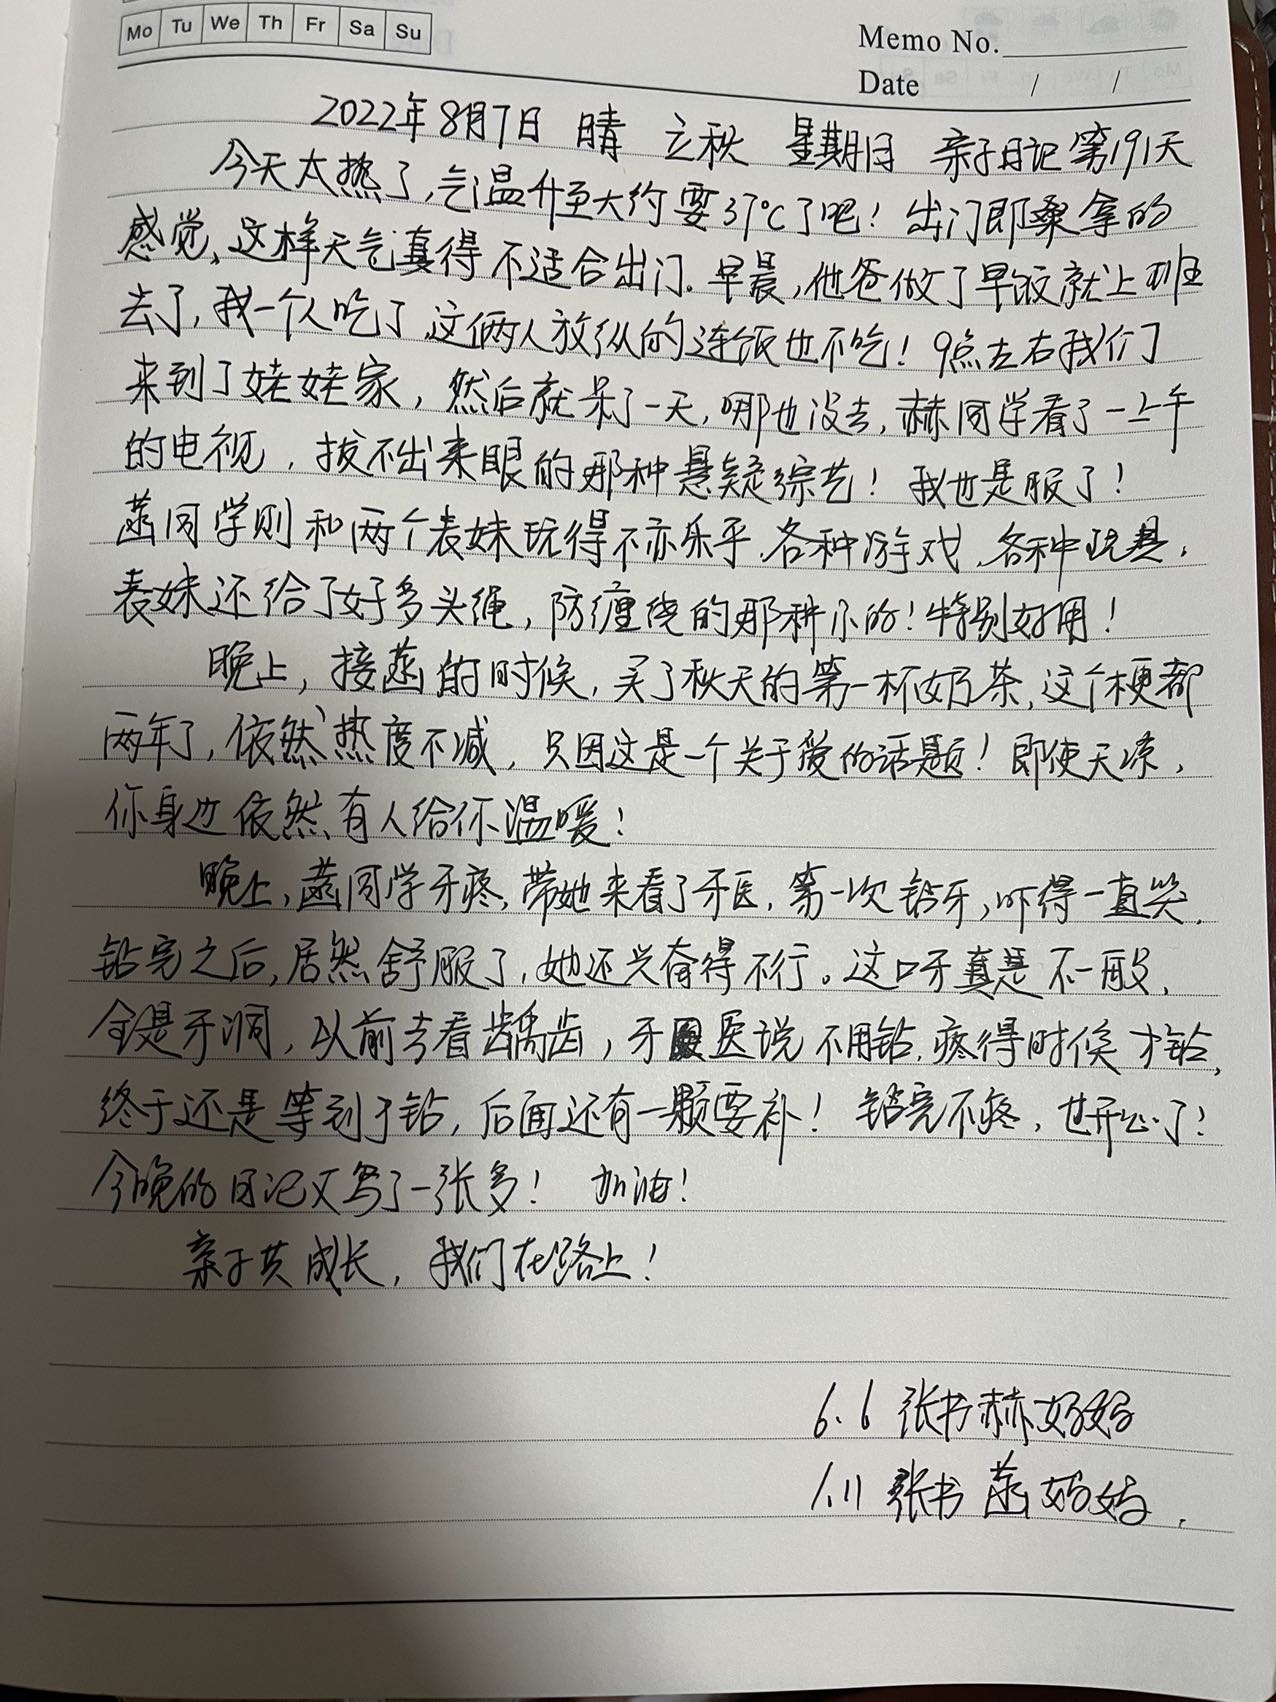 Mo Tu We Th Fr Sa Su
Memo No.
Date / /
2022年8月7日 晴 立秋 星期日 亲子日记第191天
今天太热了,气温升至大约要37℃了吧!出门即桑拿的
感觉、这样天气真得不适合出门.早晨,他爸做了早饭就上班
去了,我一个人吃了,这俩人放纵的连饭也不吃!9点左右我们
来到了姥姥家,然后就呆了一天,哪也没去,赫同学看了一上午
的电视,拔不出来眼的那种悬疑综艺!我也是服了!
菡同学则和两个表妹玩得不亦乐乎.各种游戏、各种玩具,
表妹还给了好多头绳,防缠绕的那种小的!特别好用!
晚上,接菡的时候,买了秋天的第一杯奶茶,这个梗都
两年了,依然热度不减,只因这是一个关于爱的话题!即使天凉,
你身边依然有人给你温暖!
晚上,菡同学牙疼,带她来看了牙医,第一次钻牙,吓得一直哭,
钻完之后,居然舒服了,她还兴奋得不行。这口牙真是不一般,
全是牙洞,以前去看龋齿,牙医说不用钻,疼得时候才钻,
终于还是等到了钻,后面还有一颗要补!钻完不疼,也开心了!
今晚的日记又写了一张多!加油!
亲子共成长,我们在路上!
6.6 张书赫妈妈
1.11 张书菡妈妈.